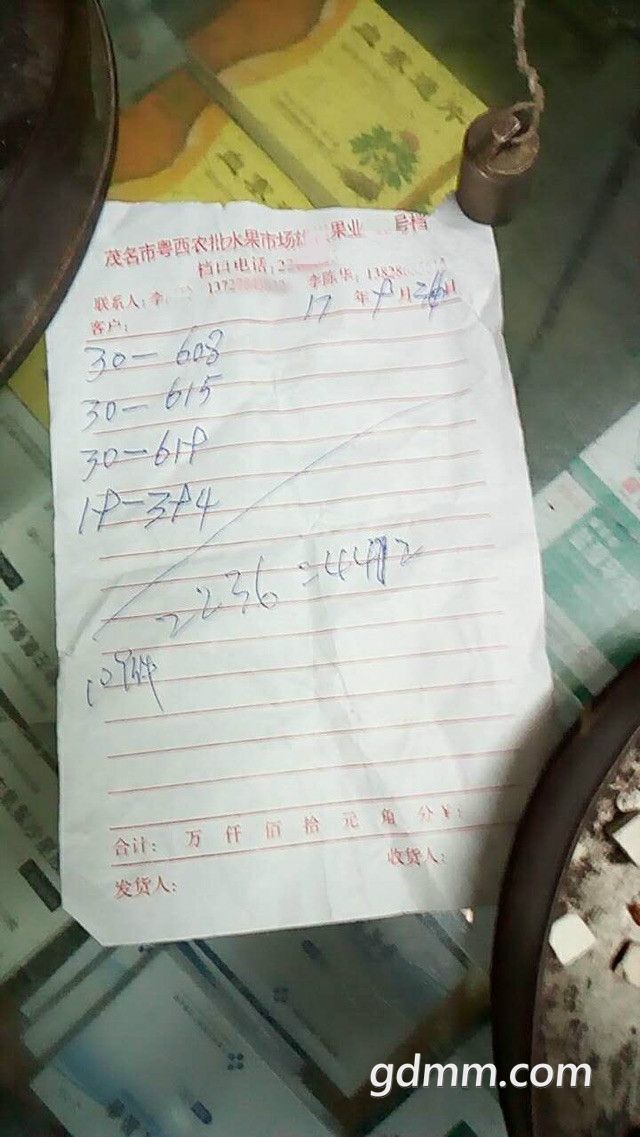 茂名市粤西农批水果市场 果业 号档
档口电话: 22
联系人: 李 1372 李陈华: 13828
客户: 17 年 9 月 日
30－608
30－615
30－619
19－394
2236 = 4472
109件
合计: 万 仟 佰 拾 元 角 分 ¥:
发货人: 收货人:
gdmm.com